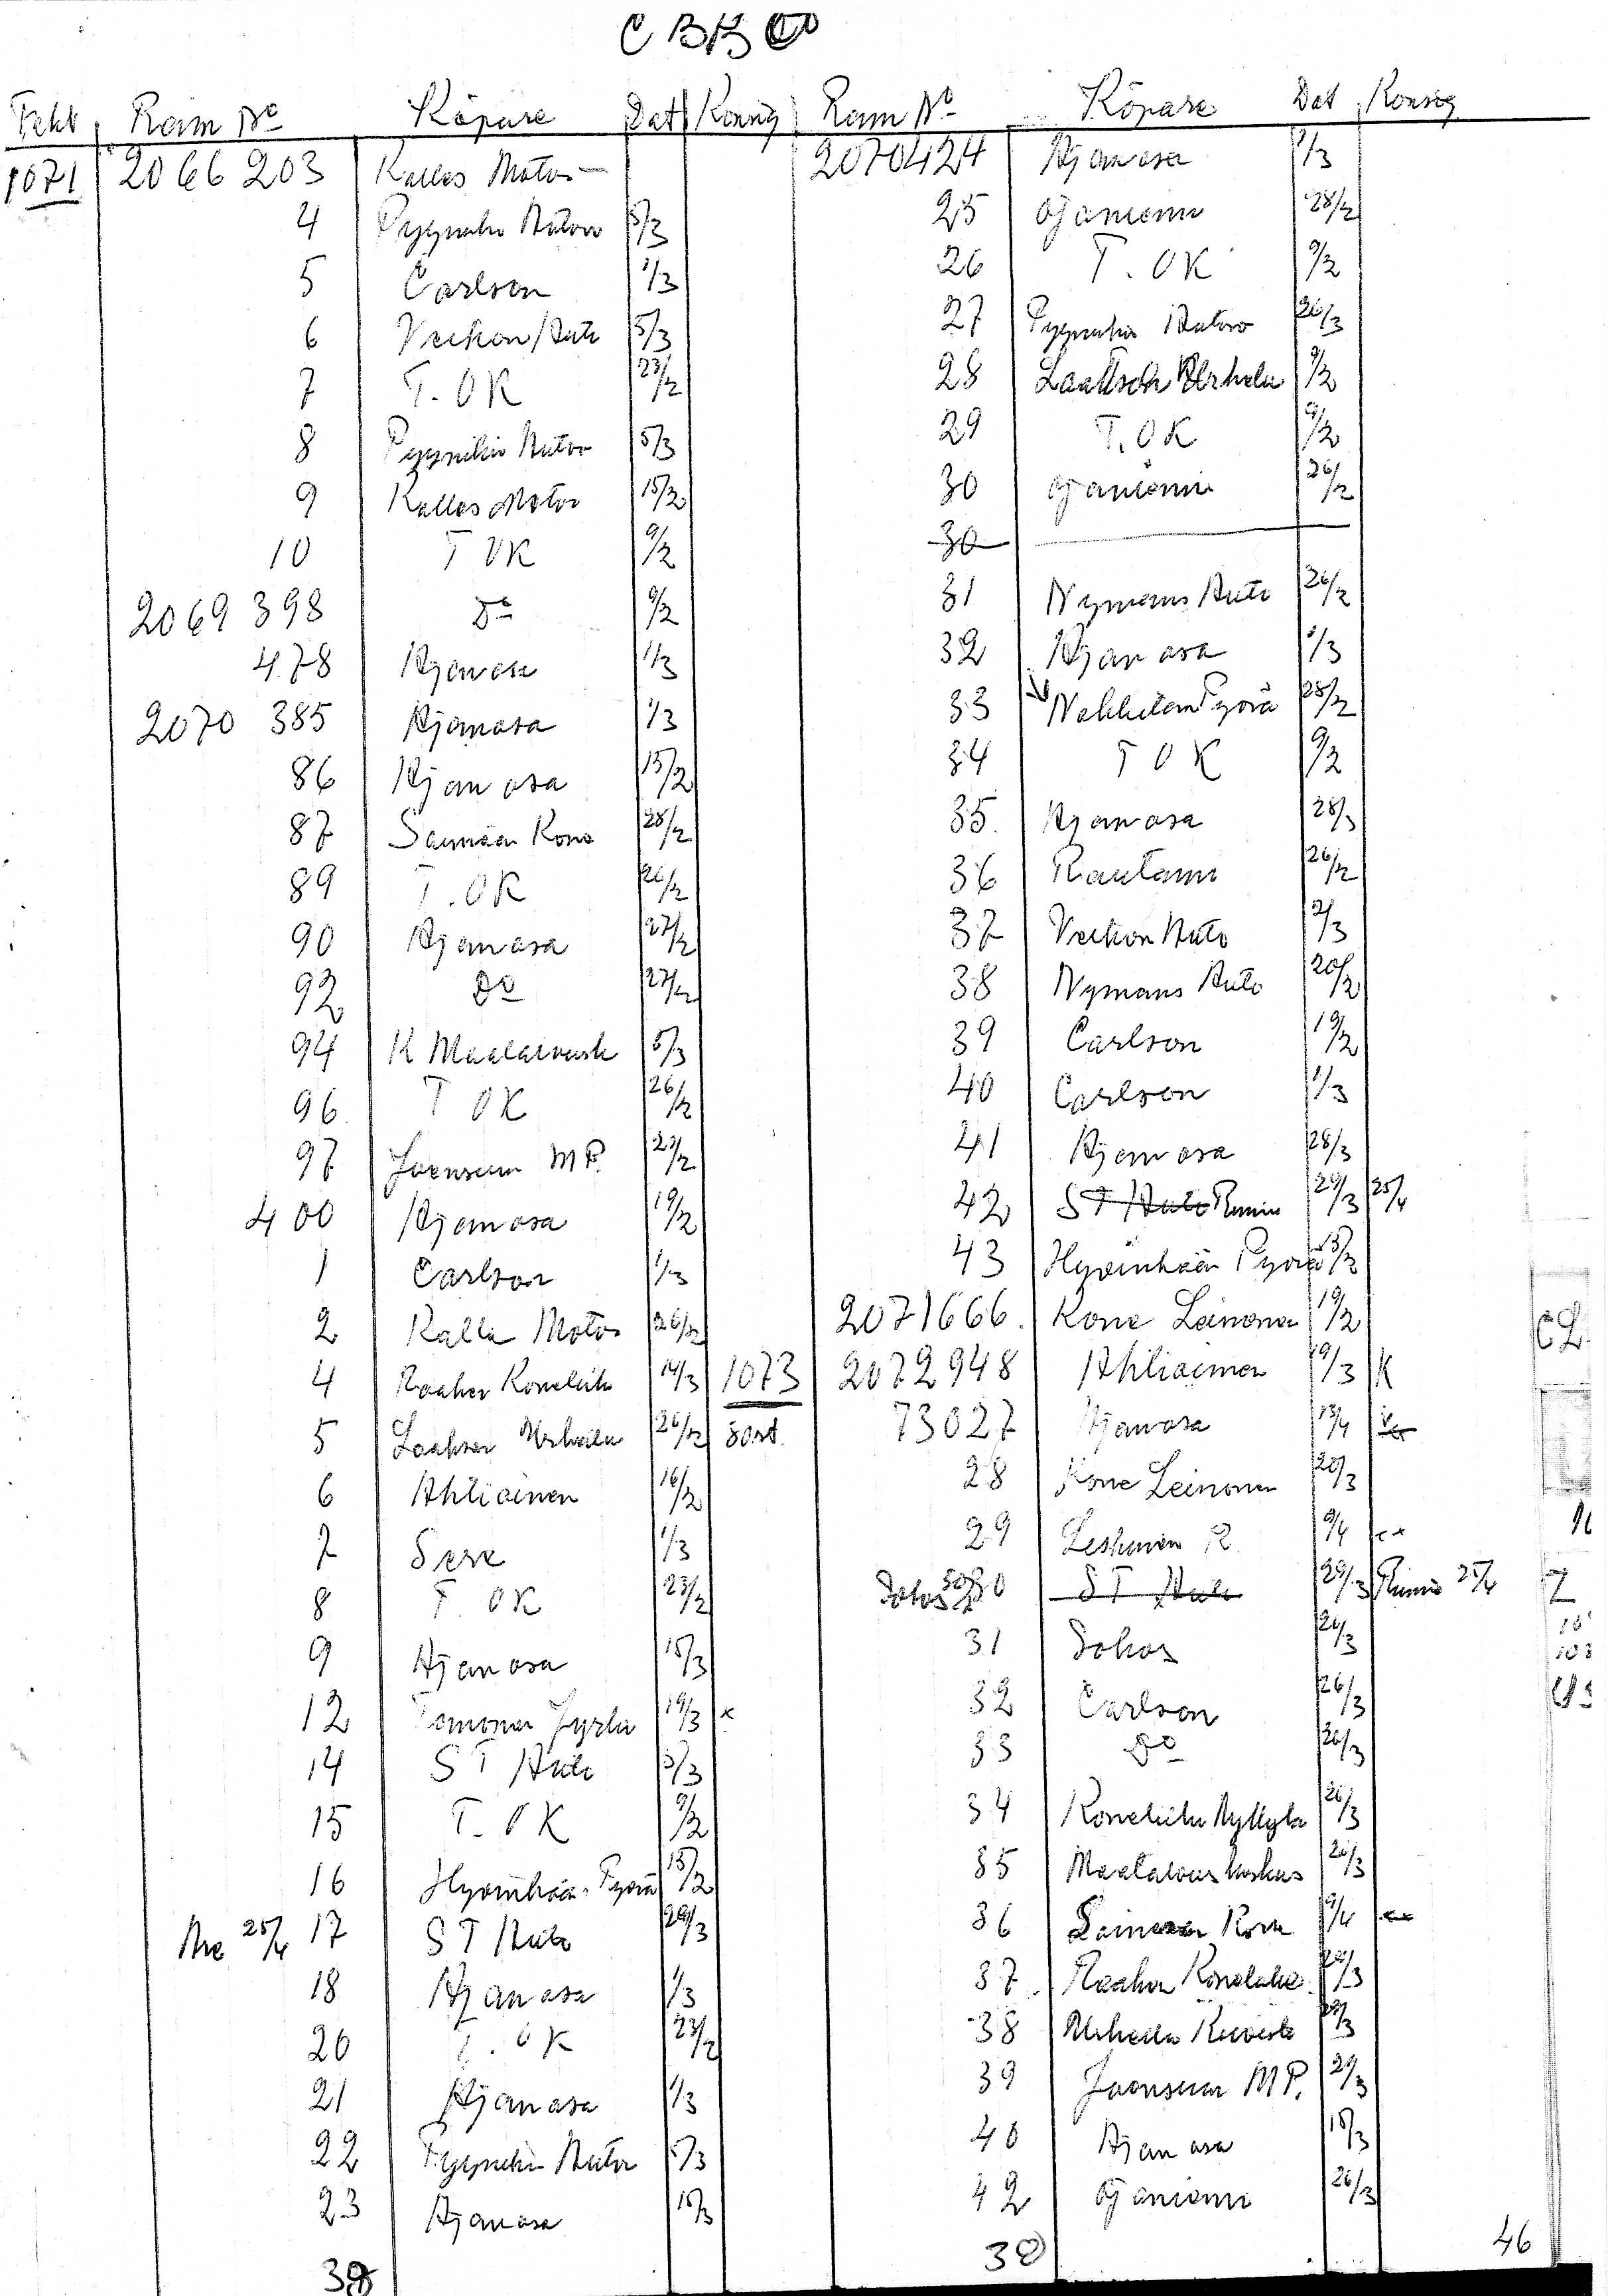 CBK
Fakt Ram No Köpare Dat Konsig
1071 2066 203 Kalles Motor
4 Pyynikin Autoro 5/3
5 Carlson 1/3
6 Veikon Auto 5/3
7 T. OK 23/2
8 Pyynikin Autoro 5/3
9 Kalles Motor 15/2
10 T OK 9/2
2069 398 Do 9/2
478 Ajanasa 1/3
2070 385 Ajanasa 1/3
86 Ajanasa 15/2
87 Saimaan Kone 28/2
89 T. OK 26/2
90 Ajanasa 27/2
92 Do 27/2
94 K Maatalousk 5/3
96 T OK 26/2
97 Joensuun MP. 23/2
400 Ajanasa 19/2
1 Carlson 1/3
2 Kalle Motor 26/2
4 Raahen Koneliike 14/3
5 Laakson Urheilu 26/2
6 Ahliainen 16/2
7 1/3
8 T. OK 23/2
9 Ajanasa 15/3
12 Jyrki 19/3 x
14 S T Auto 5/3
15 T. OK 9/2
16 Hyvinkään Pyörä 15/2
25/4 17 S T Auto 29/3
18 Ajanasa 1/3
20 T. OK 23/2
21 Ajanasa 1/3
22 Pyynikin Autor 5/3
23 Ajanasa 15/3
38
Ram No Köpare Dat Konsig
2070424 Ajanasa 1/3
25 Ojaniemi 28/2
26 T. OK 9/2
27 Pyynikin Autoro 26/3
28 Urheilu 9/2
29 T. OK 9/2
30 Ojaniemi 26/2
30
31 Nymans Auto 26/2
32 Ajanasa 1/3
33 Pyörä 28/2
34 T OK 9/2
35 Ajanasa 28/3
36 Rautami 26/2
37 Veikon Auto 2/3
38 Nymans Auto 20/2
39 Carlson 19/2
40 Carlson 1/3
41 Ajanasa 28/3
42 S T Auto 29/3 25/4
43 Hyvinkään Pyörä 15/2
2071666 Kone Leinonen 19/2
1073 2072948 Ahliainen 19/3 K
80st. 73027 Ajanasa 13/4
28 Kone Leinonen 29/3
29 R. 9/4
30 S T Auto 29/3 25/4
31 Sohos 26/3
32 Carlson 26/3
33 Do 26/3
34 Koneliike Nyllylä 26/3
35 Maatalouskeskus 26/3
36 Leinonen Kone 9/4
37 Raahen Koneliike 29/3
38 Urheilu 29/3
39 Joensuun MP. 29/3
40 Ajanasa 15/3
42 Ojaniemi 26/3
38
46